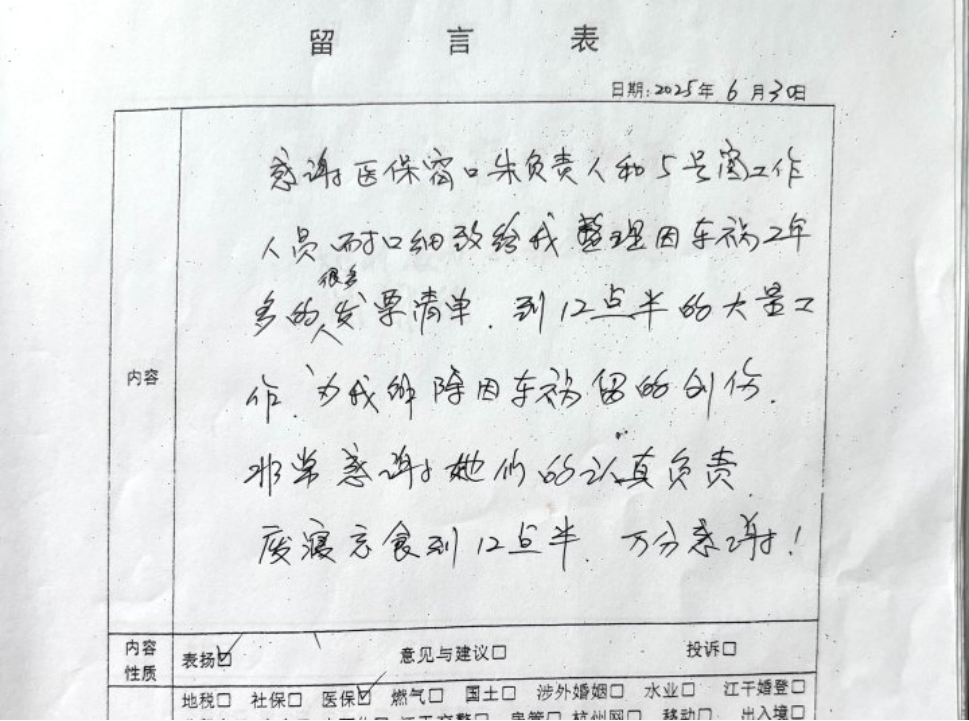 留言表
日期:2025年6月30日
感谢医保窗口朱负责人和5号窗工作
人员耐心细致给我整理因车祸2年
很多
多的发票清单.到12点半的大量工
作.为我解除因车祸留的创伤.
非常感谢她们的认真负责
废寝忘食到12点半.万分感谢!
内容
内容
性质
表扬☑ 意见与建议□ 投诉□
地税□ 社保□ 医保☑ 燃气□ 国土□ 涉外婚姻□ 水业□ 江干婚登□
江干交警□ 房管□ 杭州网□ 移动□ 出入境□